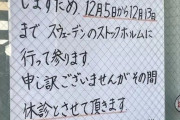 しますため、12月5日から12月13日
まで スウェーデンのストックホルムに
行って参ります
申し訳ございませんがその間
休診とさせて頂きます